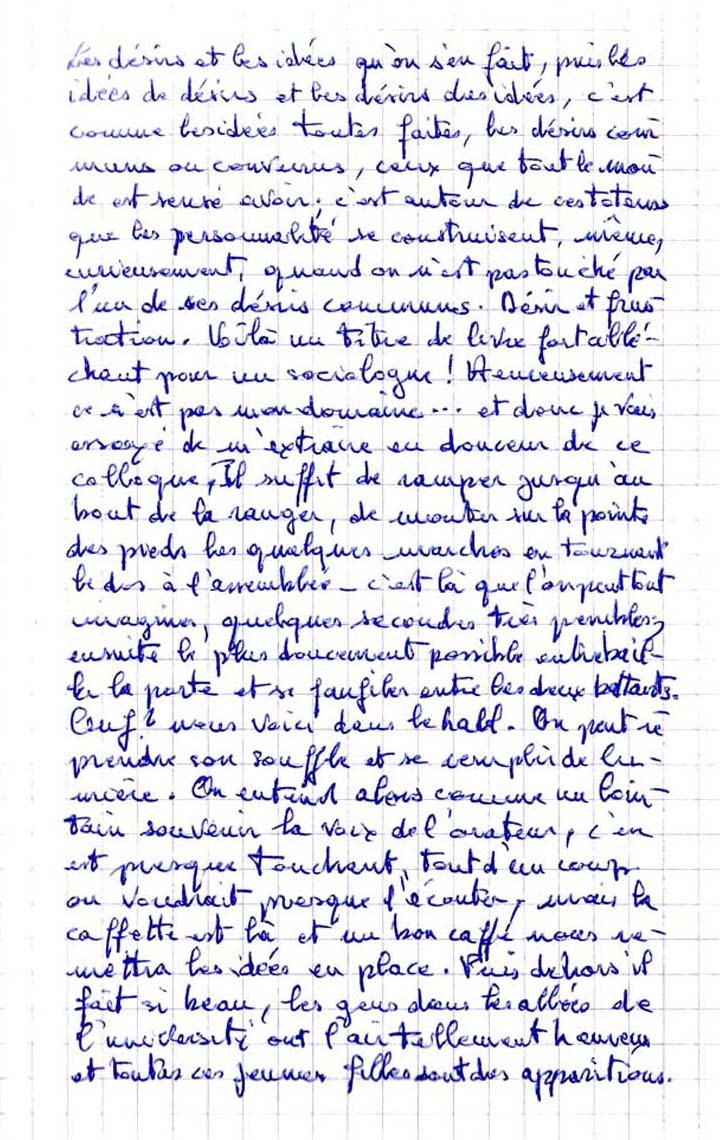 Les désirs et les idées qu'on s'en fait, puis les
idées de désirs et les désirs des idées, c'est
comme les idées toutes faites, les désirs com
muns ou convenus, ceux que tout le mon
de est sensé avoir; c'est autour de ces totems
que les personnalité se construisent, même,
curieusement, quand on n'est pas touché par
l'un de ses désirs communs. Désir et frus
tration. Voilà un titre de livre fort allé-
chant pour un sociologue! Heureusement
ce n'est pas mon domaine... et donc je vais
essayé de m'extraire en douceur de ce
colloque, Il suffit de ramper jusqu'au
bout de la ranger, de monter sur la pointe
des pieds les quelques marches en tournant
le dos à l'assemblée - c'est là que l'on peut tout
imaginer, quelques secondes très penibles;
ensuite le plus doucement possible entrebail-
ler la porte et se faufiler entre les deux battants.
Ouf! nous voici dans le hall. On peut re
prendre son souffle et se remplir de lu-
mière. On entend alors comme un loin-
tain souvenir la voix de l'orateur, c'en
est presque touchant, tout d'un coup
on voudrait presque l'écouter, mais la
caffette est là et un bon caffé nous re-
mettra les idées en place. Puis dehors il
fait si beau, les gens dans les allées de
l'université ont l'air tellement heureux
et toutes ces jeunes filles sont des apparitions.